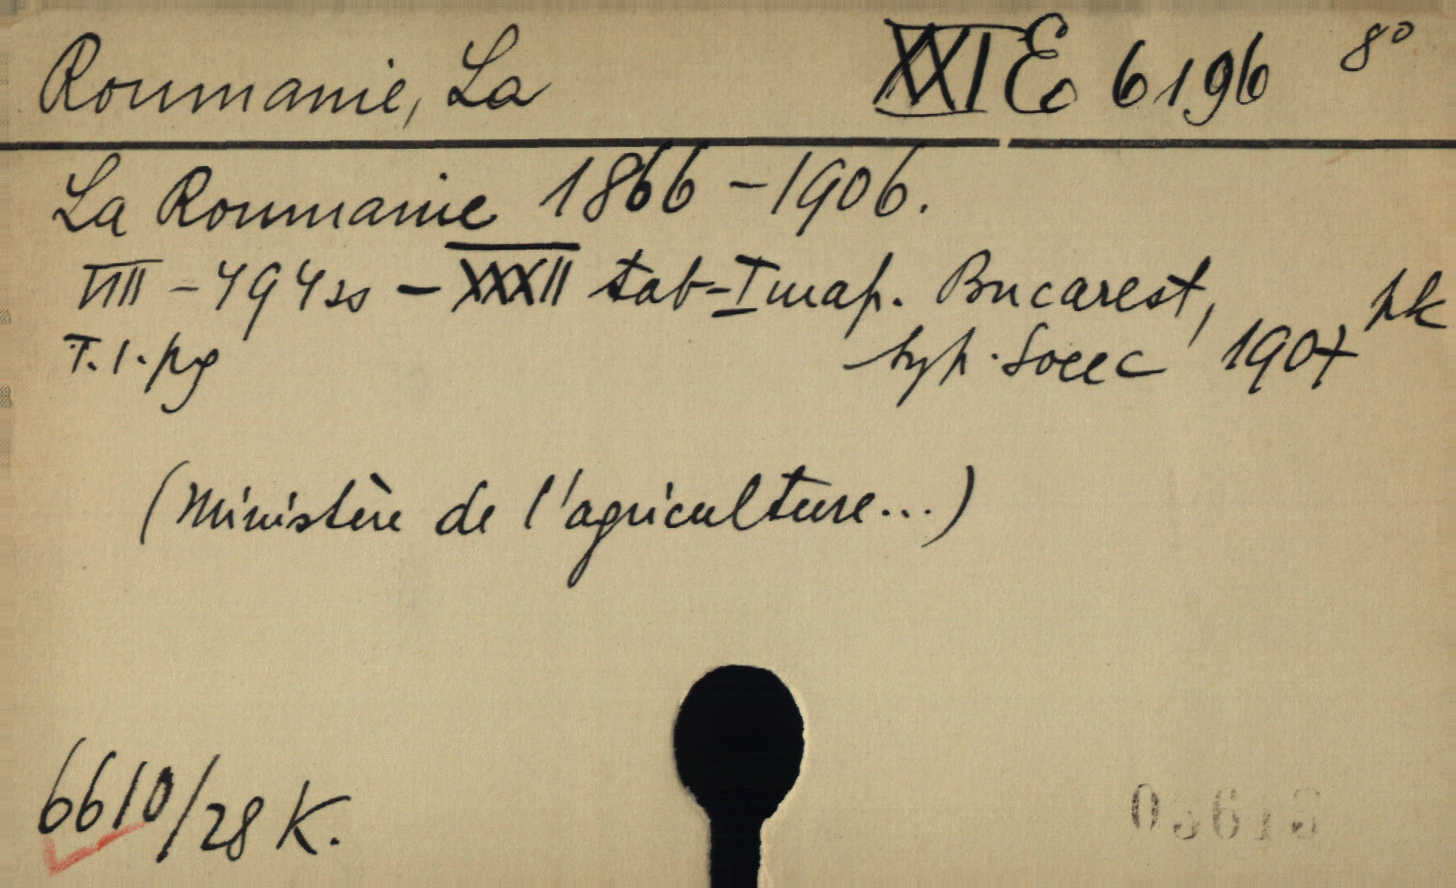 Roumanie, La XXI E 6196 8°
La Roumanie 1866-1906.
VIII - 494 ss - XXXII tab - I map. Bucarest,
T. 1. pg typ. Socec, 1907 pk
(Ministère de l'agriculture...)
6610/28 K.